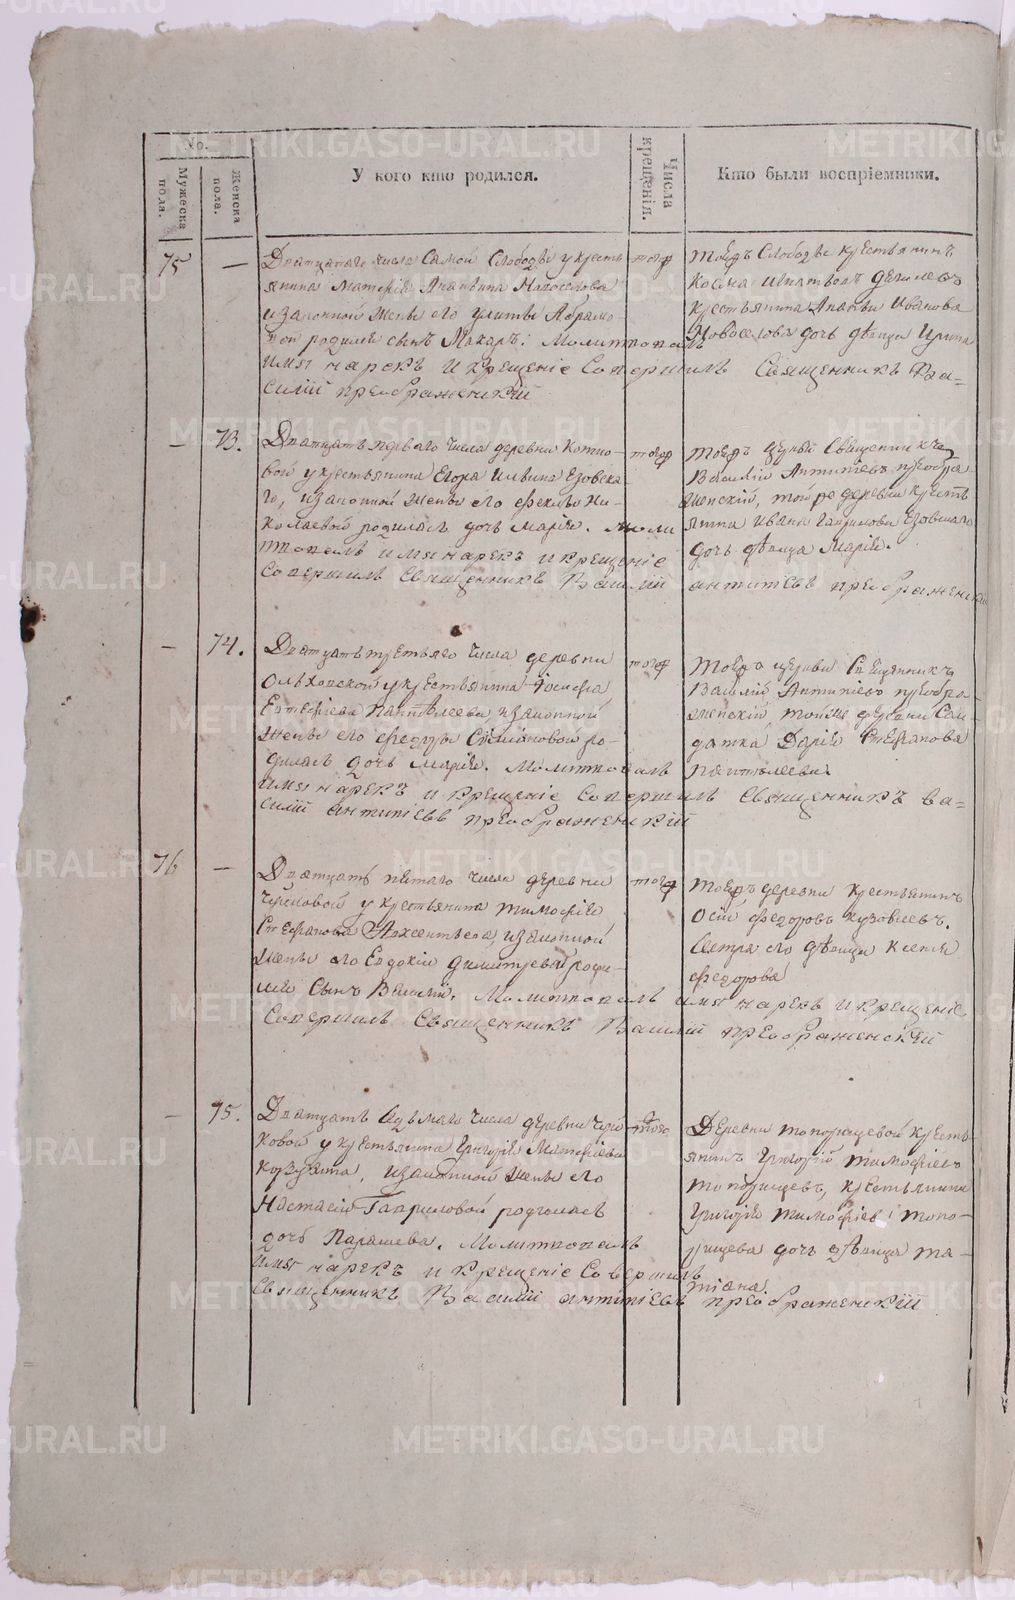 No.
Мужеска пола.
Женска пола.
У кого кто родился.
Числа крещенія.
Кто были воспріемники.
75
—
Дватцатаго числа Самой Слободы у кресть
янина Матфѣя Ананьина Новоселова
и законной жены его Улиты Абрамо-
вой родился сынъ Макаръ: Молитвовалъ
имя нарекъ и крещеніе совершилъ Священникъ Ва-
силій преображенскій
того ж
тоежъ Слободы крестьянинъ
Косма Игнатьевъ
крестьянина Ананьи Иванова
Новоселова дочь дѣвица Ирина
—
73.
Дватцать перваго числа деревни
вой у крестьянина Егора Ильина Езовска-
го, и законной жены его Феклы Ни-
колаевой родилась дочь Марія. Моли
твовалъ имя нарекъ и крещеніе
совершилъ Священникъ Василій антипіевъ преображенскій
того ж
тоежъ церкви Священникъ
Василій Антипіевъ преобра
женскій, той же деревни кресть
янина Ивана Гаврилова Езовскаго
дочь дѣвица Марія.
—
74.
Дватцать третьяго числа деревни
Ольховской у крестьянина Іосифа
Евтефіева Пантѣлеева и законной
жены его Федоры Симановой ро-
дилась дочь Марія. Молитвовалъ
имя нарекъ и крещеніе совершилъ священникъ ва-
силій антипіевъ преображенскій
того ж
тоежъ церкви Священникъ
Василій Антипіевъ преобра-
женскій, той же деревни Сол-
датка Дарія Стефанова
Пантѣлеева.
76
—
Дватцать пятаго числа деревни
у крестьянина тимофѣя
Стефанова Авксентьева, и законной
жены его Евдокіи димитревой роди-
лся Сынъ Василій. Молитвовалъ имя нарекъ и крещеніе
совершилъ Священникъ Василій преображенскій
того ж
тоежъ деревни крестьянинъ
Осій Федоровъ Кузовлевъ.
Сестра его дѣвица Ксенія
Федорова
—
75.
Дватцать седьмаго числа деревни
ковой у крестьянина Григорія Матфѣева
и законной жены его
Настасіи Гавриловой родилась
дочь Парасцева. Молитвовалъ
имя нарекъ и крещеніе Совершилъ
Священникъ Василій антипіевъ преображенскій
того
Деревни топорищевой кресть-
янинъ Григорій тимофѣевъ
топорищевъ, крестьянина
Григорія тимофѣева топо-
рищева дочь дѣвица та-
тіана
METRIKI.GASO-URAL.RU